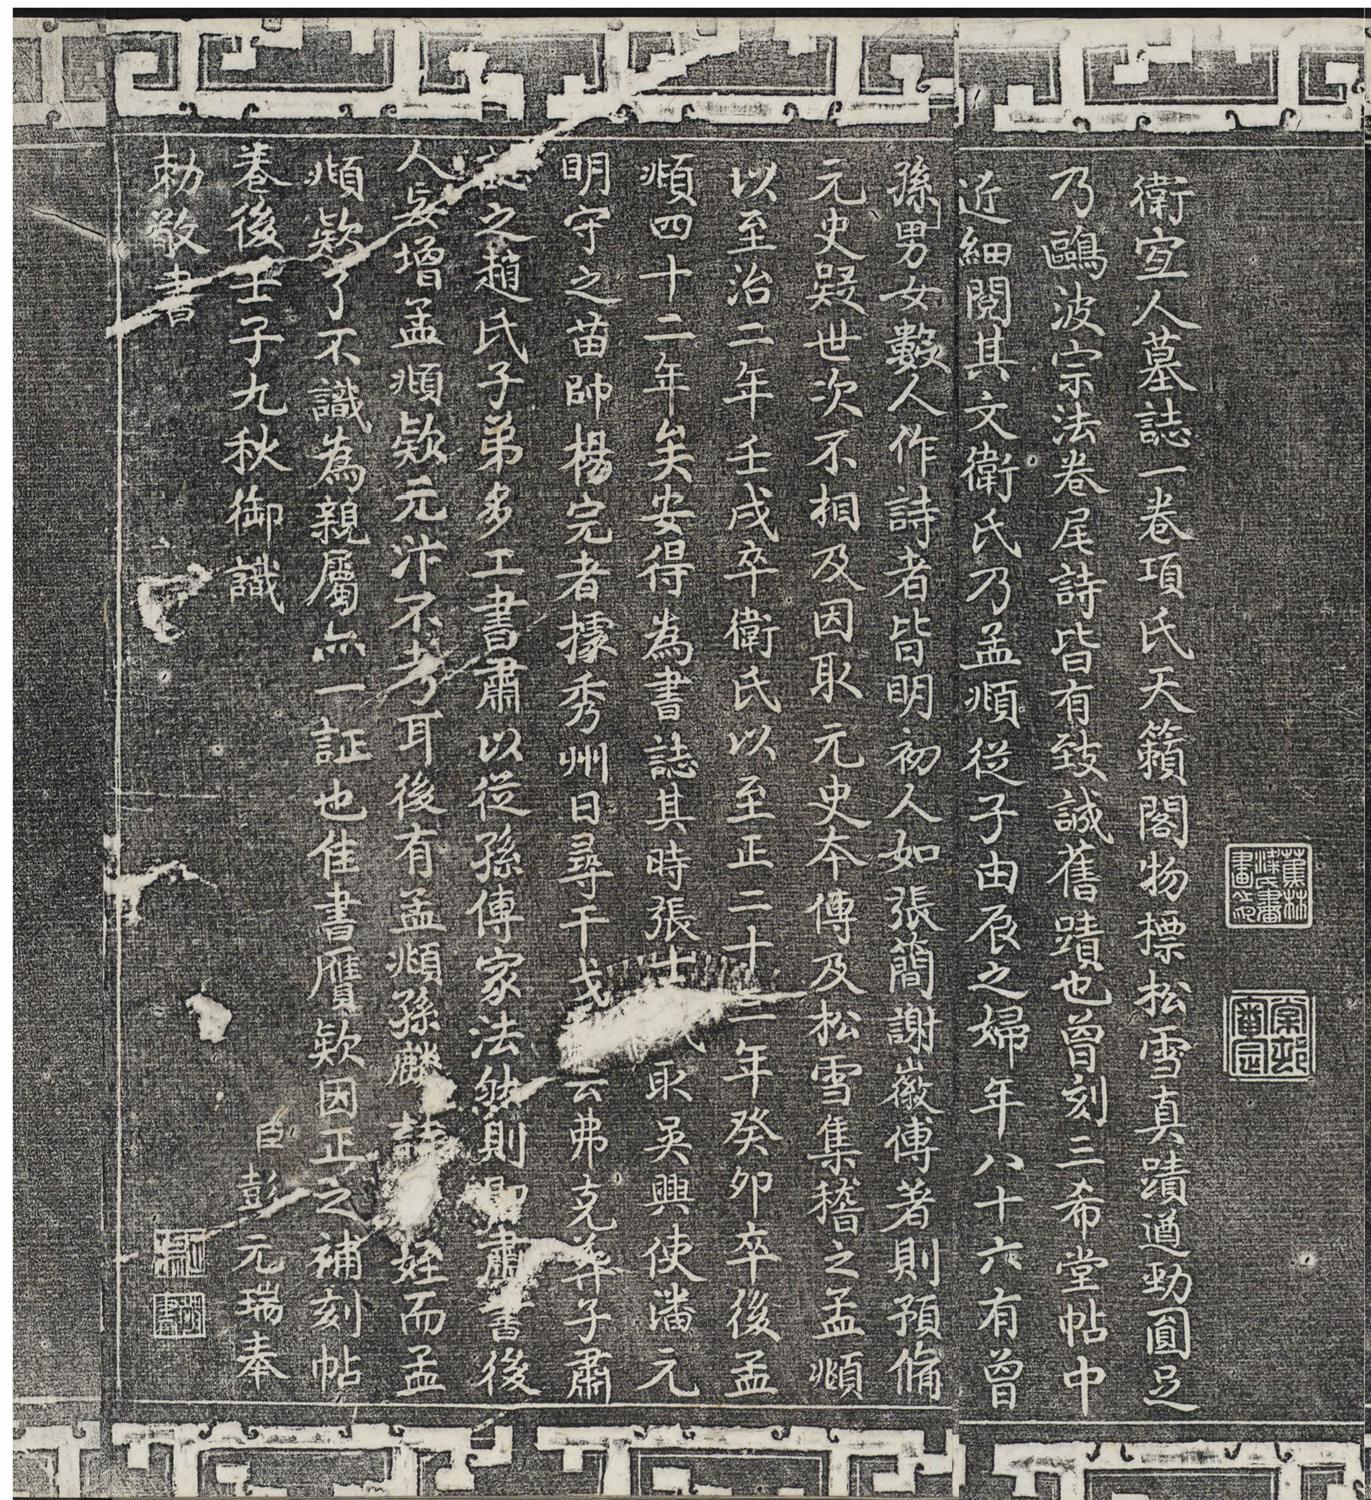 蕉林梁氏書畫之印
衛宜人墓誌一卷項氏天籟閣物標松雪真蹟遒勁圓足
乃鷗波宗法卷尾詩皆有致誠舊蹟也曾刻三希堂帖中
近細閱其文衛氏乃孟頫從子由辰之婦年八十六有曾
孫男女數人作詩者皆明初人如張簡謝徽傅著則預脩
元史段世次不相及因取元史本傳及松雪集稽之孟頫
以至治二年壬戌卒衛氏以至正二十三年癸卯卒後孟
頫四十二年矣安得為書誌其時張士取吳興使潘元
明守之苗帥楊完者據秀州日尋干戈云弗克葬子肅
誌之趙氏子弟多工書肅以從孫傳家法然則即肅書後
人妄增孟頫欵元汴不考耳後有孟頫孫麟詩姪而孟
頫欵了不識為親屬亦一証也佳書贗欵因正之補刻帖
卷後壬子九秋御識
臣彭元瑞奉
勅敬書